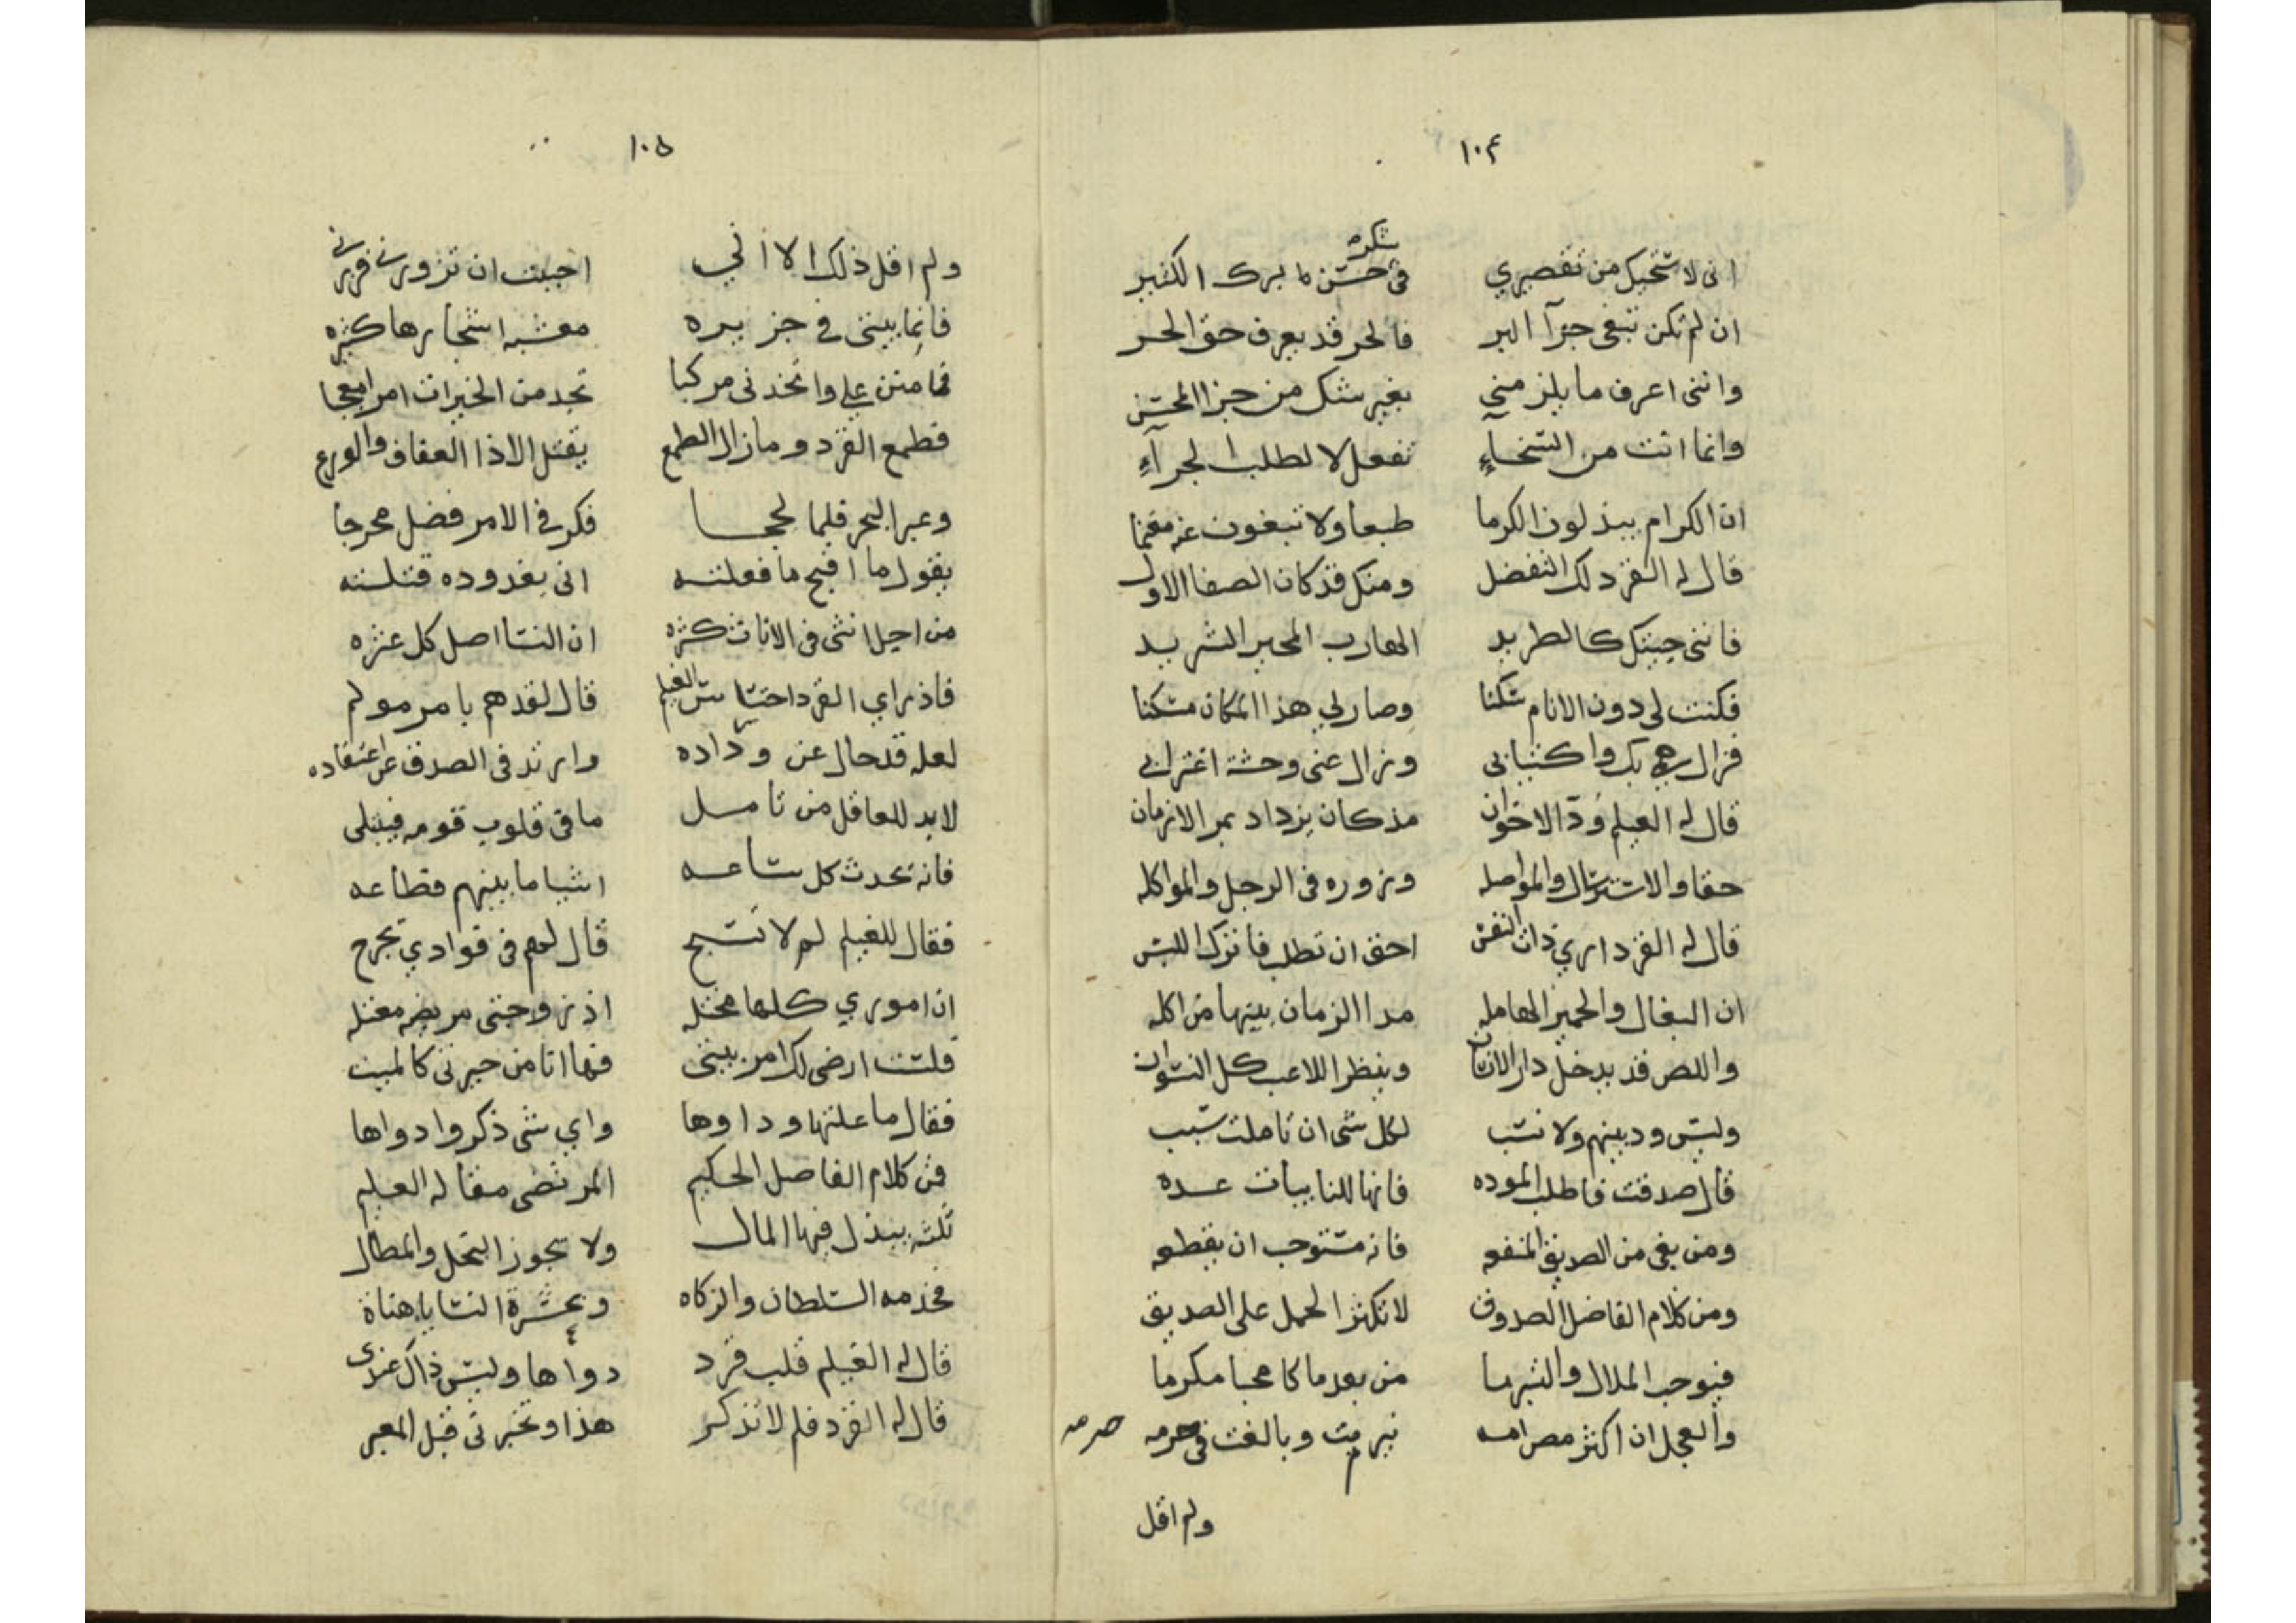 ١٠٤
انى لاستحيك من تقصيري في حسن ما برك الكثير
شكره
ان لم تكن تبغى جزآ البر فالحر قد يعرف حق الحر
واننى اعرف ما يلزمنى بغير شك من جزا المحسن
وانما انت من السخآءِ تفعل لا لطلب الجرآءِ
ان الكرام يبذلون الكرما طبعا ولا تبغون عنه مغنما
قال له القرد لك التفضل ومنك قد كان الصفا الاول
فاننى جيتك كالطريد الهارب المحير الشريد
فكنت لى دون الانام سكنا وصار لي هذا المكان مسكنا
فزال همى بك واكتئابى وزال عنى وحشة اغترابى
قال له الغيلم ودّ الاخوان مذ كان يزداد بمر الازمان
حقا والاسترسال والمواصله وزوره فى الرحل والمواكله
قال له القرد اري ذات النفس احق ان تطلب فاترك اللبس
ان البغال والحمير الهامله مدا الزمان بينها مواكله
واللص قد يدخل دار الانسان وينظر اللاعب كل النسوان
وليس ود بينهم ولا نسب لكل شى ان تاملت سبب
قال صدقت فاطلب الموده فانها للنايبات عده
ومن بغى من الصديق المنفعه فانه مستوجب ان يقطعه
ومن كلام الفاضل الصدوق لا تكثر الحمل على الصديق
فيوجب الملال والتبرما من بعد ما كا محبا مكرما
والعجل ان اكثر مص امه تبرمت وبالغت في صرمه
صرمه
ولم اقل
١٠٥
ولم اقل ذلك الا اني احببت ان تزورنى فزرنى
فانما بيتى في جزيره معشبه اشجارها كثيره
فامنن علي واتخذنى مركبا تجد من الخيرات امرا معجبا
فطمع القرد وما زال الطمع يقتل الا ذا العفاف والورع
وعبر البحر فلما لججا فكر في الامر فضل محرجا
يقول ما اقبح ما فعلته انى بغد وده قتلته
من اجل انثى فى الاناث كثره ان النسا اصل كل عثره
فاذ راي القرد احتباس الغيلم قال لقد هم بامر مولم
لعله قد حال عن وداده وارتد فى الصدق عن اعتقاده
لا بد للعاقل من تامل ما في قلوب قومه فيبتلى
فانه تحدث كل ساعه اشيا ما بينهم قطاعه
فقال للغيلم لم لا تسبح قال لهم فى فوادي تجرح
ان اموري كلها مختله اذ زوجتى مريضه معتله
فلست ارضى لك امر بيتى فها انا من حيرتى كالميت
فقال ما علتها وداوها واي شى ذكروا دواها
فمن كلام الفاضل الحكيم المرتضى مقاله العليم
ثلثه يبذل فيها المال ولا يجوز البخل والمطال
فخدمه السلطان والزكاه وعشرة النسا يا هناة
قال له الغيلم قلب قرد دوآها وليس ذاك عندى
قال له القرد فلم لا تذكر هذا وتخبرنى قبل المعبر